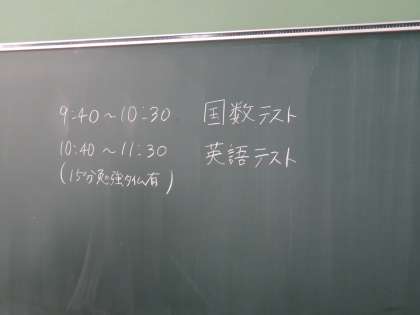 9:40〜10:30 国数テスト
10:40〜11:30 英語テスト
(15分勉強タイム有)